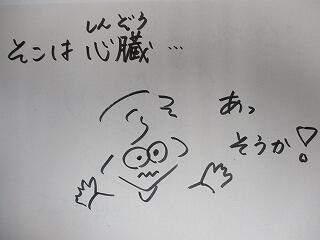 しんぞう
そこは 心臓 …
あっ
そうか!